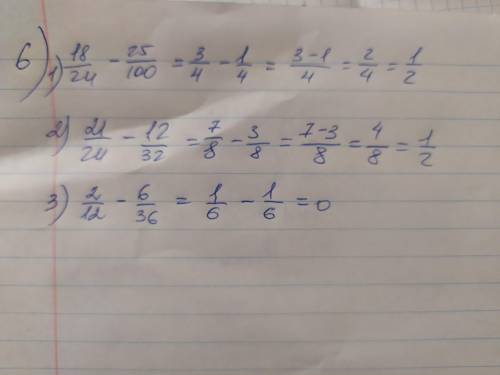 6) 1) 18/24 - 25/100 = 3/4 - 1/4 = 3-1/4 = 2/4 = 1/2
2) 21/24 - 12/32 = 7/8 - 3/8 = 7-3/8 = 4/8 = 1/2
3) 2/12 - 6/36 = 1/6 - 1/6 = 0